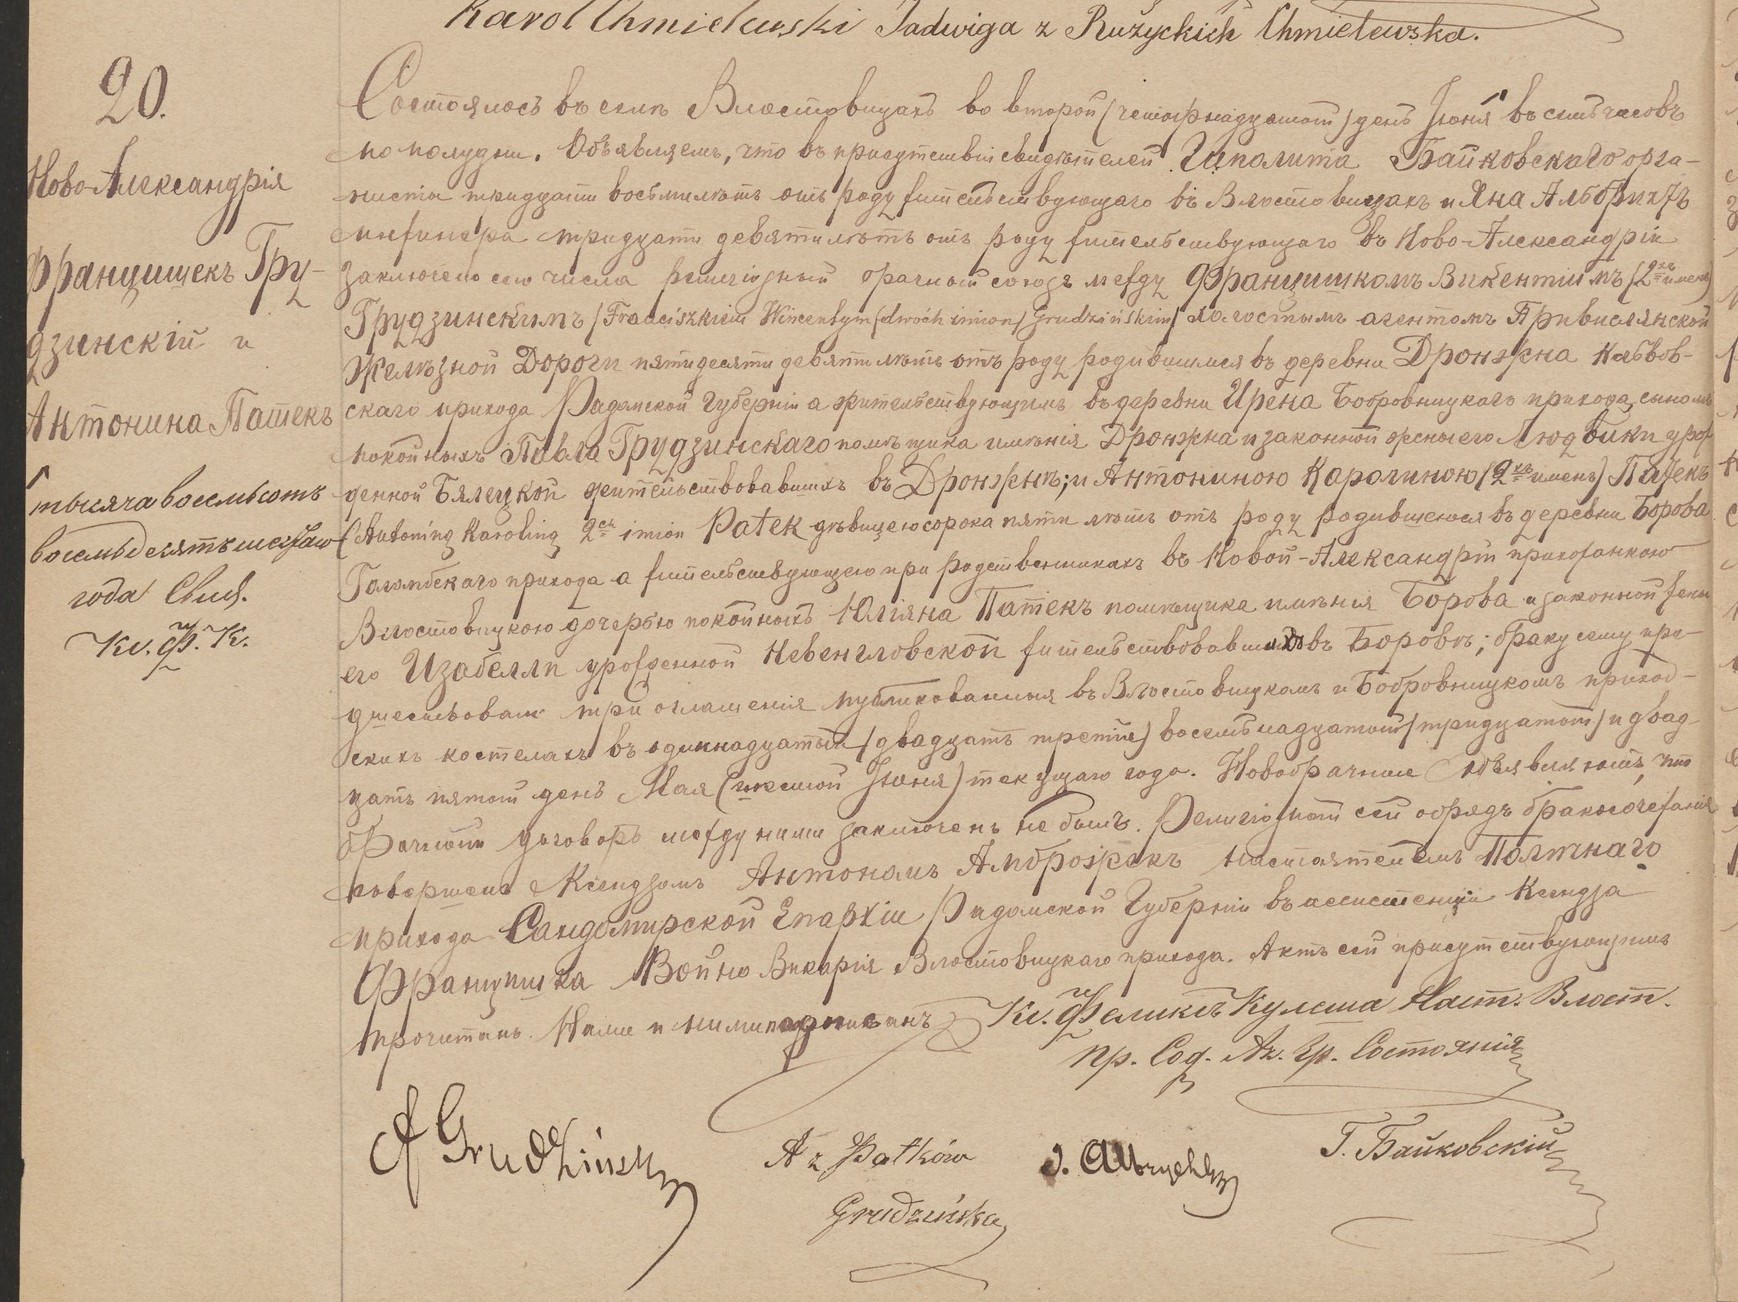 Karol Chmielewski Jadwiga z Rużyckich Chmielewska.
20.
Ново-Александрія
Францишекъ Гру-
дзинскій и
Антонина Патекъ
тысяча восемьсотъ
восемьдесятъ шестаго
года
Кс. Ф. К.
Состоялось въ селѣ Влостовицахъ во второй (четырнадцатый) день Іюня въ семь часовъ
по полудни. Объявляемъ, что въ присутствіи свидѣтелей Гиполита Байковскаго орга-
ниста тридцати восьми лѣтъ отъ роду жительствующаго въ Влостовицахъ и Яна Альбрихтъ
инженера тридцати девяти лѣтъ отъ роду жительствующаго въ Ново-Александріи
заключено сего числа религіозный брачный союзъ между Францишкомъ Викентіемъ (2хъ именъ)
Грудзинскимъ (Franciszkiem Wincentym (dwóch imion) Grudzińskim) холостымъ агентомъ Привислянской
Желѣзной Дороги пятидесяти девяти лѣтъ отъ роду родившимся въ деревни Дронжна
скаго прихода Радомской Губерніи а жительствующимъ въ деревни Ирена Бобровницкаго прихода, сыномъ
покойныхъ Павла Грудзинскаго помѣщика имѣнія Дронжна и законной жены его Людвики урож-
денной Бялецкой жительствовавшихъ въ Дронжнѣ; и Антониною Каролиною (2хъ именъ) Патекъ
(Antoniną Karoliną 2ch imion Patek дѣвицею сорока пяти лѣтъ отъ роду родившеюся въ деревни Борова
Голомбскаго прихода а жительствующею при родственникахъ въ Новой-Александріи прихожанкою
Влостовицкою дочерью покойныхъ Юліяна Патекъ помѣщика имѣнія Борова и законной жены
его Изабелли урожденной Невенгловской жительствовавшихъ въ Боровѣ; браку сему пре-
дшествовали три оглашенія публикованныя въ Влостовицкомъ и Бобровницкомъ приход-
скихъ костелахъ въ одиннадцатый (двадцать третій) восемьнадцатый (тридцатый) и двад-
цать пятый день Мая (шестой Іюня) текущаго года. Новобрачные объявляютъ, что
брачный договоръ между ними заключенъ не былъ. Религіозный сей обрядъ бракосочетанія
совершенъ Ксендзомъ Антономъ Амброжекъ настоятелемъ
прихода Сандомирской Епархіи Радомской Губерніи въ ассистенціи Ксендза
Францишка Войно Викарія Влостовицкаго прихода. Актъ сей присутствующимъ
прочитанъ Нами и ними подписанъ
Кс. Феликсъ Кулеша Наст. Влост.
пр. Сод. Ак. Гр. Состоянія
F Grudziński
A z Patków
Grudzińska
J. Albrycht
Г. Байковскій